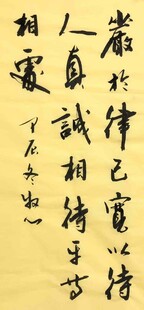 嚴於律己寬以待
人真誠相待平等
相處
甲辰冬牧心